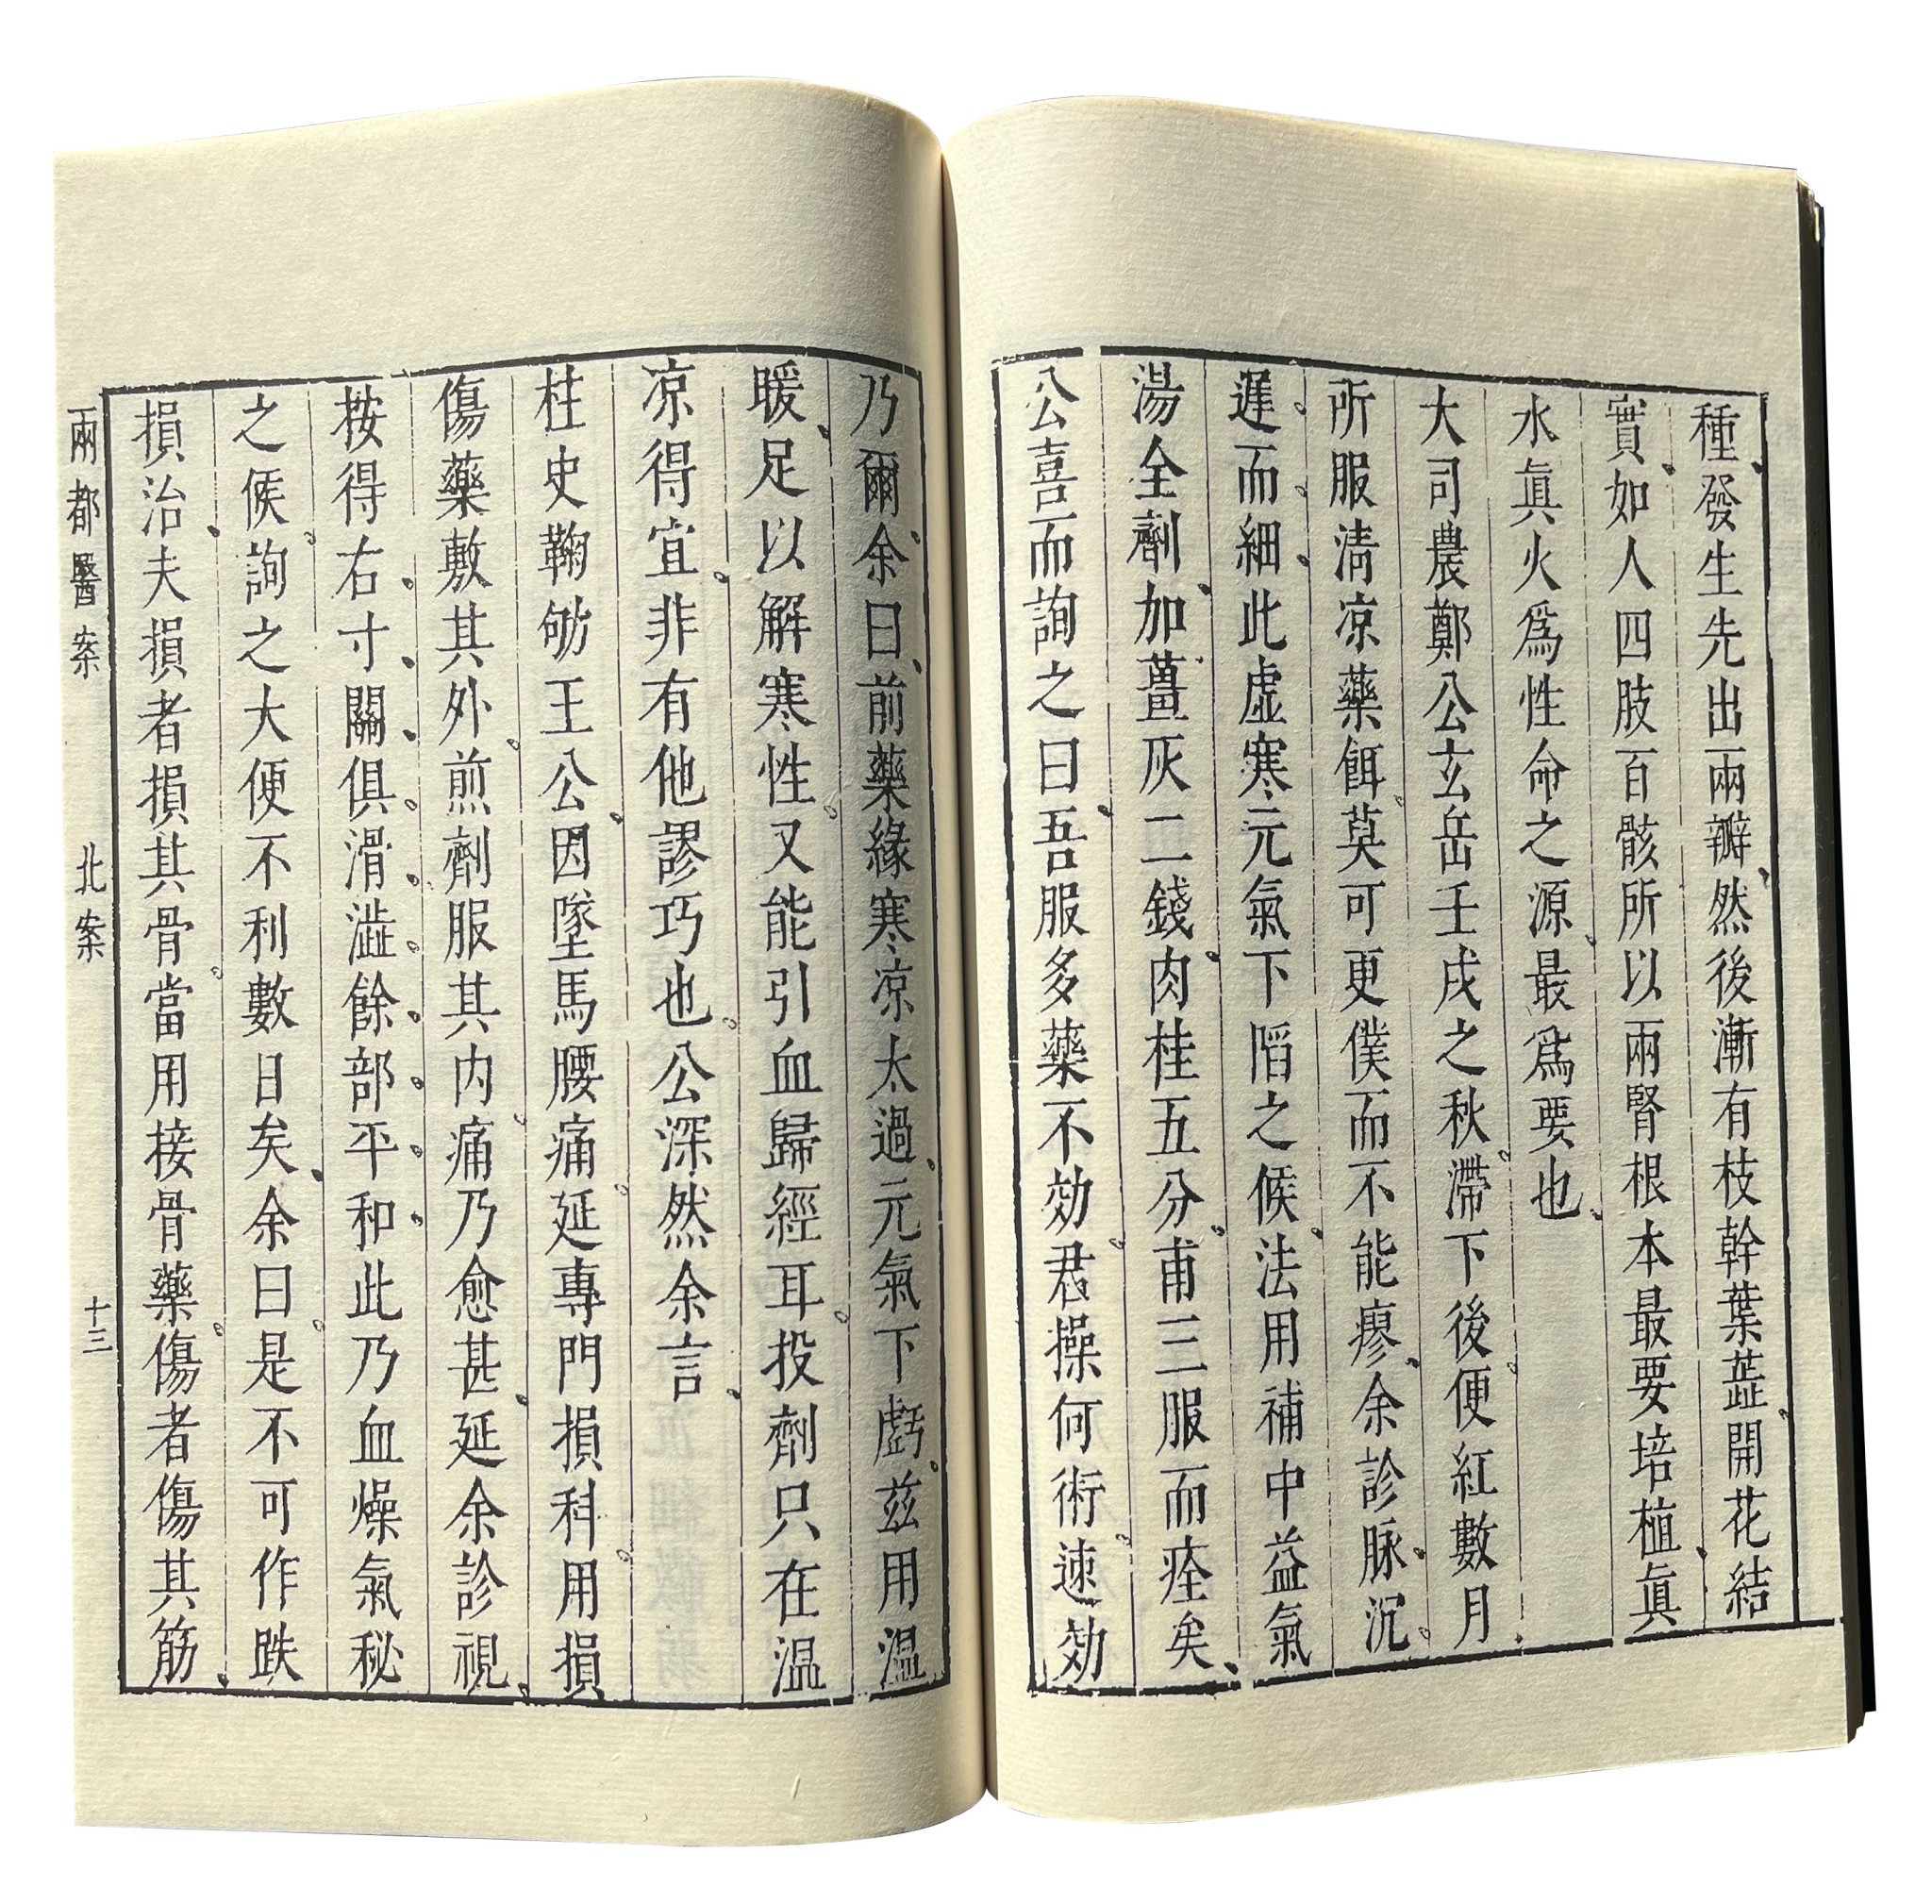 種發生先出兩瓣然後漸有枝幹葉蘂開花結
實如人四肢百骸所以兩腎根本最要培植眞
水眞火爲性命之源最爲要也
大司農鄭公玄岳壬戌之秋滯下後便紅數月
所服淸凉藥餌莫可更僕而不能瘳余診脉沉
遲而細此虛寒元氣下陷之候法用補中益氣
湯全劑加薑灰二錢肉桂五分甫三服而痊矣
公喜而詢之曰吾服多藥不効君操何術速効
乃爾余曰前藥緣寒凉太過元氣下虧茲用溫
暖足以解寒性又能引血歸經耳投劑只在溫
凉得宜非有他謬巧也公深然余言
柱史鞠劬王公因墜馬腰痛延專門損科用損
傷藥敷其外煎劑服其內痛乃愈甚延余診視
按得右寸關俱滑澁餘部平和此乃血燥氣秘
之候詢之大便不利數日矣余曰是不可作跌
損治夫損者損其骨當用接骨藥傷者傷其筋
兩都醫案 北案 十三